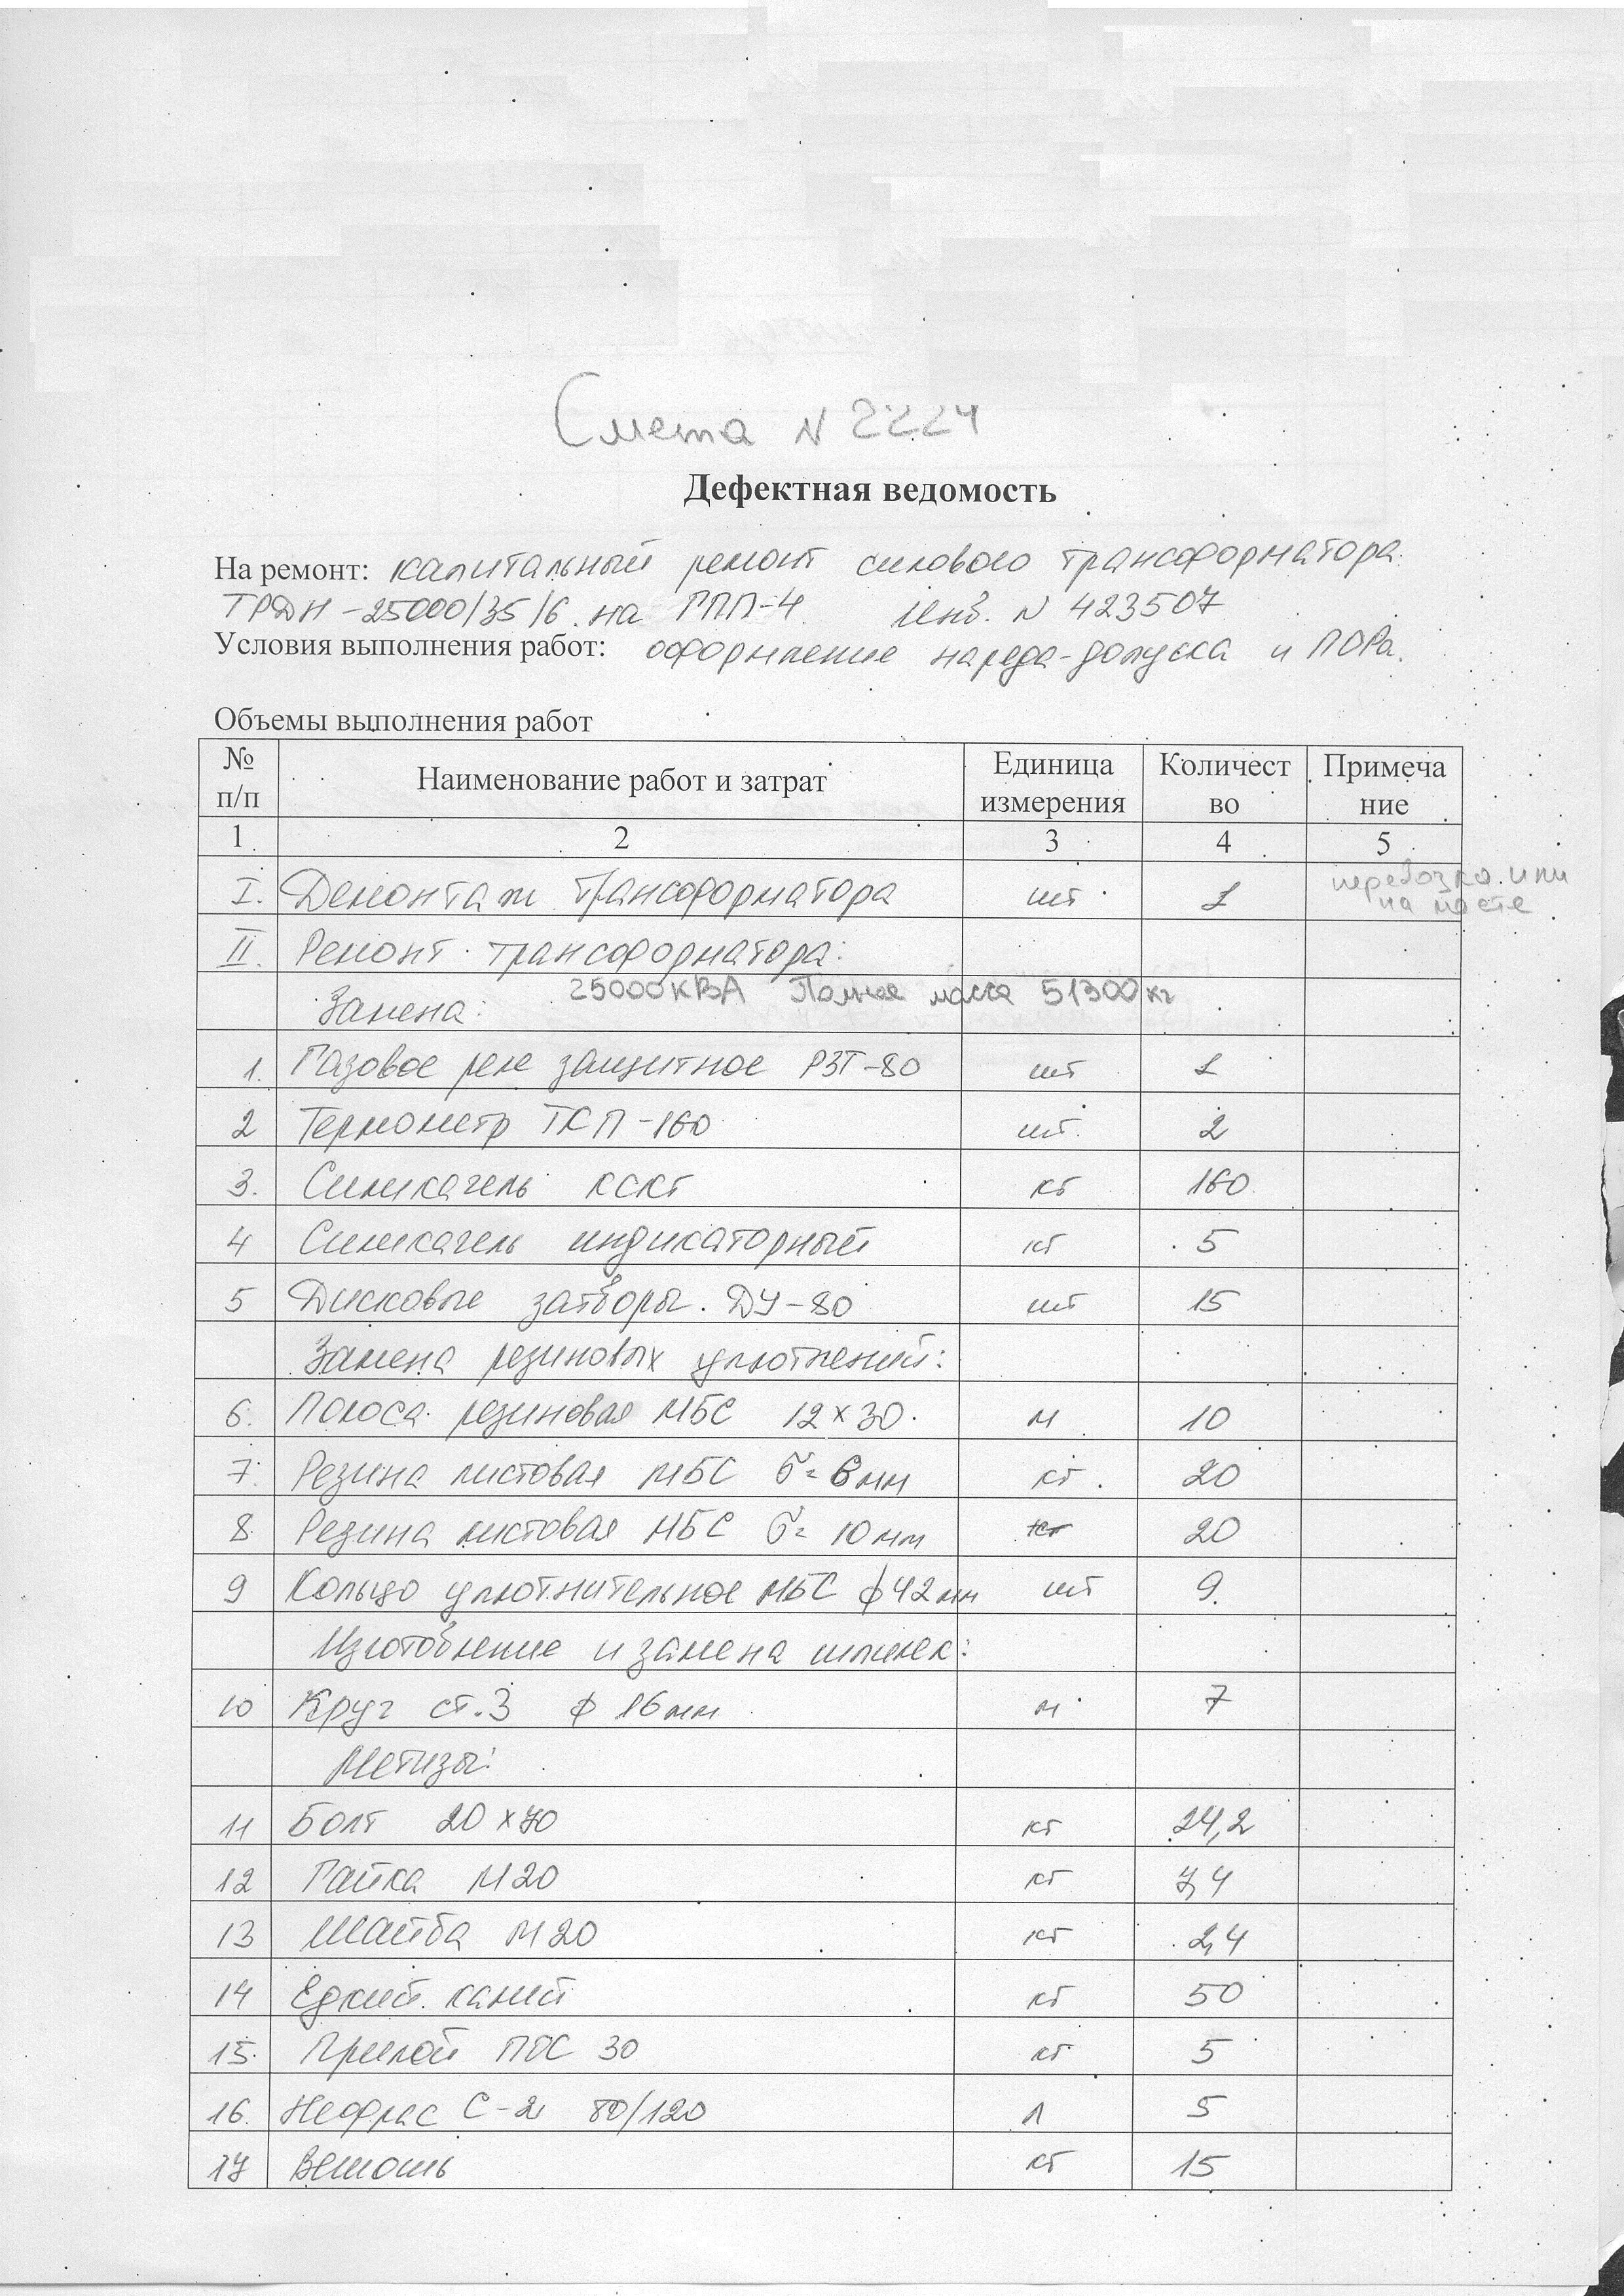 Смета N 2224
Дефектная ведомость
На ремонт: капитальный ремонт силового трансформатора
ТРДН-25000/35/6 на ГПП-4 инв. N 423507
Условия выполнения работ: оформление наряда-допуска и ПОРа.
Объемы выполнения работ
№ п/п Наименование работ и затрат Единица измерения Количест во Примеча ние
1 2 3 4 5
I. Демонтаж трансформатора шт 1 перевозка или на месте
II. Ремонт трансформатора:
25000 кВА Полная масса 51300 кг
Замена:
1. Газовое реле защитное РЗТ-80 шт 1
2 Термометр ТКП-160 шт. 2
3. Силикагель КСКГ кг 160
4 Силикагель индикаторный кг 5
5 Дисковые затворы. ДУ-80 шт 15
Замена резиновых уплотнений:
6. Полоса резиновая МБС 12х30. м 10
7. Резина листовая МБС б=6мм кг. 20
8. Резина листовая МБС б= 10мм кг 20
9 Кольцо уплотнительное МБС ф42мм шт 9.
Изготовление и замена шпилек:
10 Круг ст.3 ф 16мм м 7
Метизы:
11 Болт 20х70 кг 24,2
12 Гайка М20 кг 7,4
13 Шайба М20 кг 2,4
14 Едкий калий кг 50
15. Припой ПОС 30 кг 5
16. Нефрас С-2 80/120 л 5
17 Ветошь кг 15